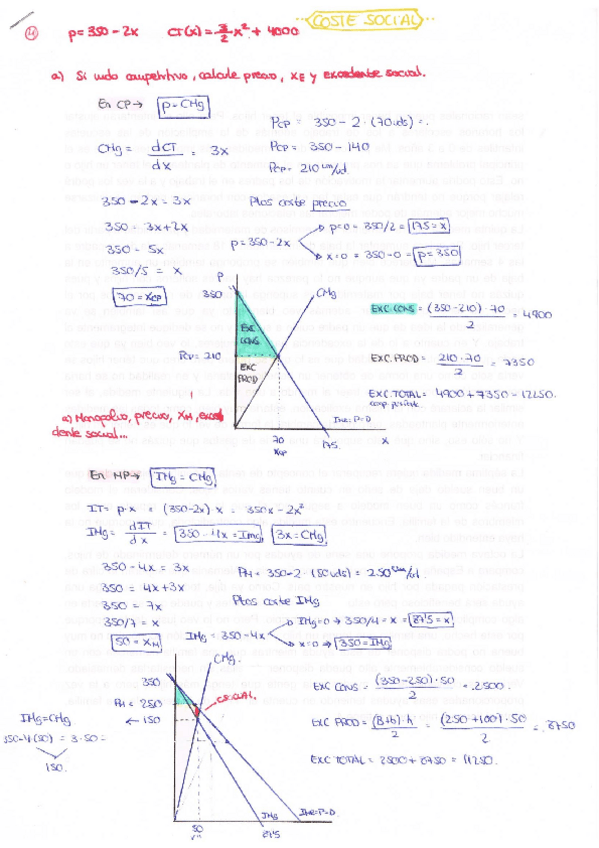 COSTE SOCIAL
p = 350 - 2x CT(x) = 3/2 x² + 4000
a) Si mdo competitivo, calcule precio, xE y excedente social.
En CP → p = CHg
CHg = dCT/dx = 3x
350 - 2x = 3x
350 = 3x + 2x
350 = 5x
350/5 = x
70 = xCP
PCP = 350 - 2·(70uds) =
PCP = 350 - 140
PCP = 210 um/ud
Ptos corte precio
p = 350 - 2x
p=0 = 350/2 = 175 = x
x=0 = 350 - 0 = p = 350
P
350
CHg
EXC CONS
PCP = 210
EXC PROD
Ime = P = D
70
xCP
175
x
EXC. CONS = (350-210)·70 / 2 = 4900
EXC. PROD = 210·70 / 2 = 7350
EXC. TOTAL = 4900 + 7350 = 12250.
a) Monopolio, precio, xM, exce
dente social...
En MP → IHg = CHg
IT = p·x = (350-2x)·x = 350x - 2x²
IMg = dIT/dx = 350 - 4x = Img 3x = CHg
350 - 4x = 3x
350 = 4x + 3x
350 = 7x
350/7 = x
50 = xM
PM = 350 - 2·(50uds) = 250 um/ud.
Ptos corte IHg
IHg = 350 - 4x
IHg = 0 → 350/4 = x = 87'5 = x
x = 0 → 350 = IHg
CHg.
350
PM = 250
← 150
C.SOCIAL.
IHg = CHg
350 - 4(50) = 3·50 =
150.
IHg
Ime = P = D.
50
87'5
EXC CONS = (350-250)·50 / 2 = 2500.
EXC PROD = (B+b)·h / 2 = (250+100)·50 / 2 = 8750
EXC TOTAL = 2500 + 8750 = 11250.